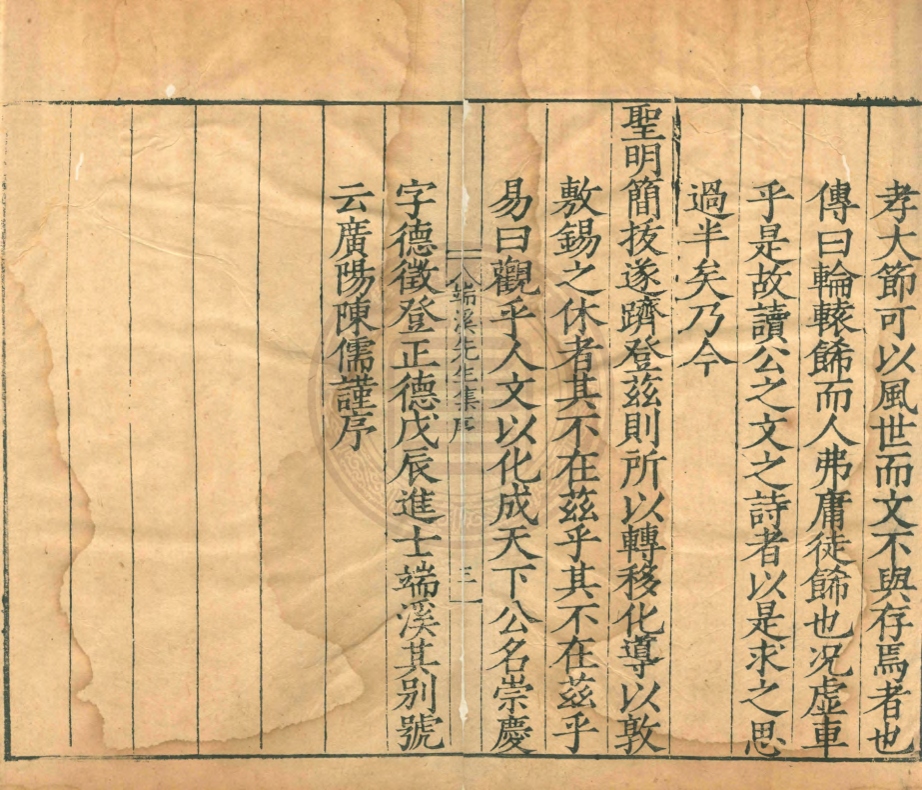 孝大節可以風世而文不與存焉者也
傳曰輪轅餙而人弗庸徒餙也况虛車
乎是故讀公之文之詩者以是求之思
過半矣乃今
聖明簡拔遂躋登兹則所以轉移化導以敦
敷錫之休者其不在兹乎其不在兹乎
易曰觀乎人文以化成天下公名崇慶
端溪先生集序
三
字德徵登正德戊辰進士端溪其別號
云廣陽陳儒謹序